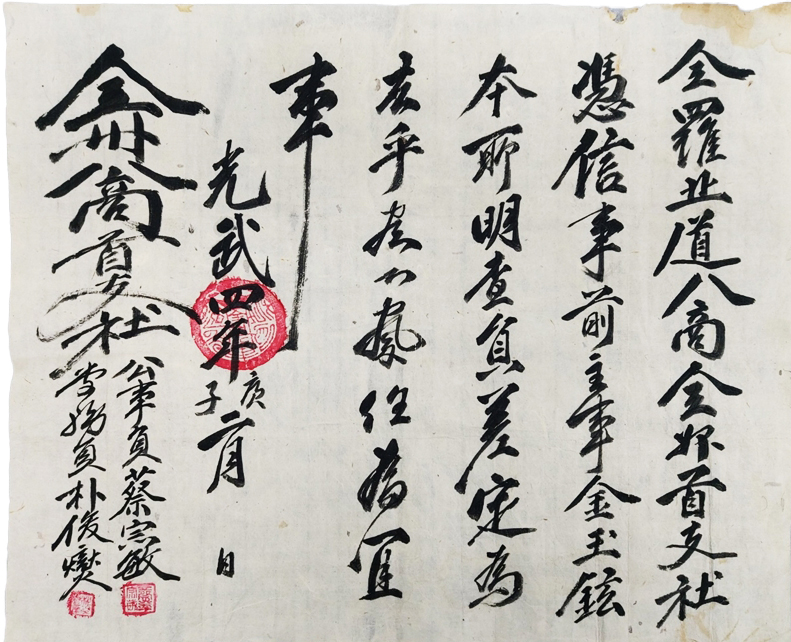 全羅北道八商全州首支社
憑信事前主事金玉鉉
本所明查員差定爲
去乎心任爲宜
事
光武四年庚子二月 日
全州八商首支社
公事員蔡宗敏
掌務員朴俊燮